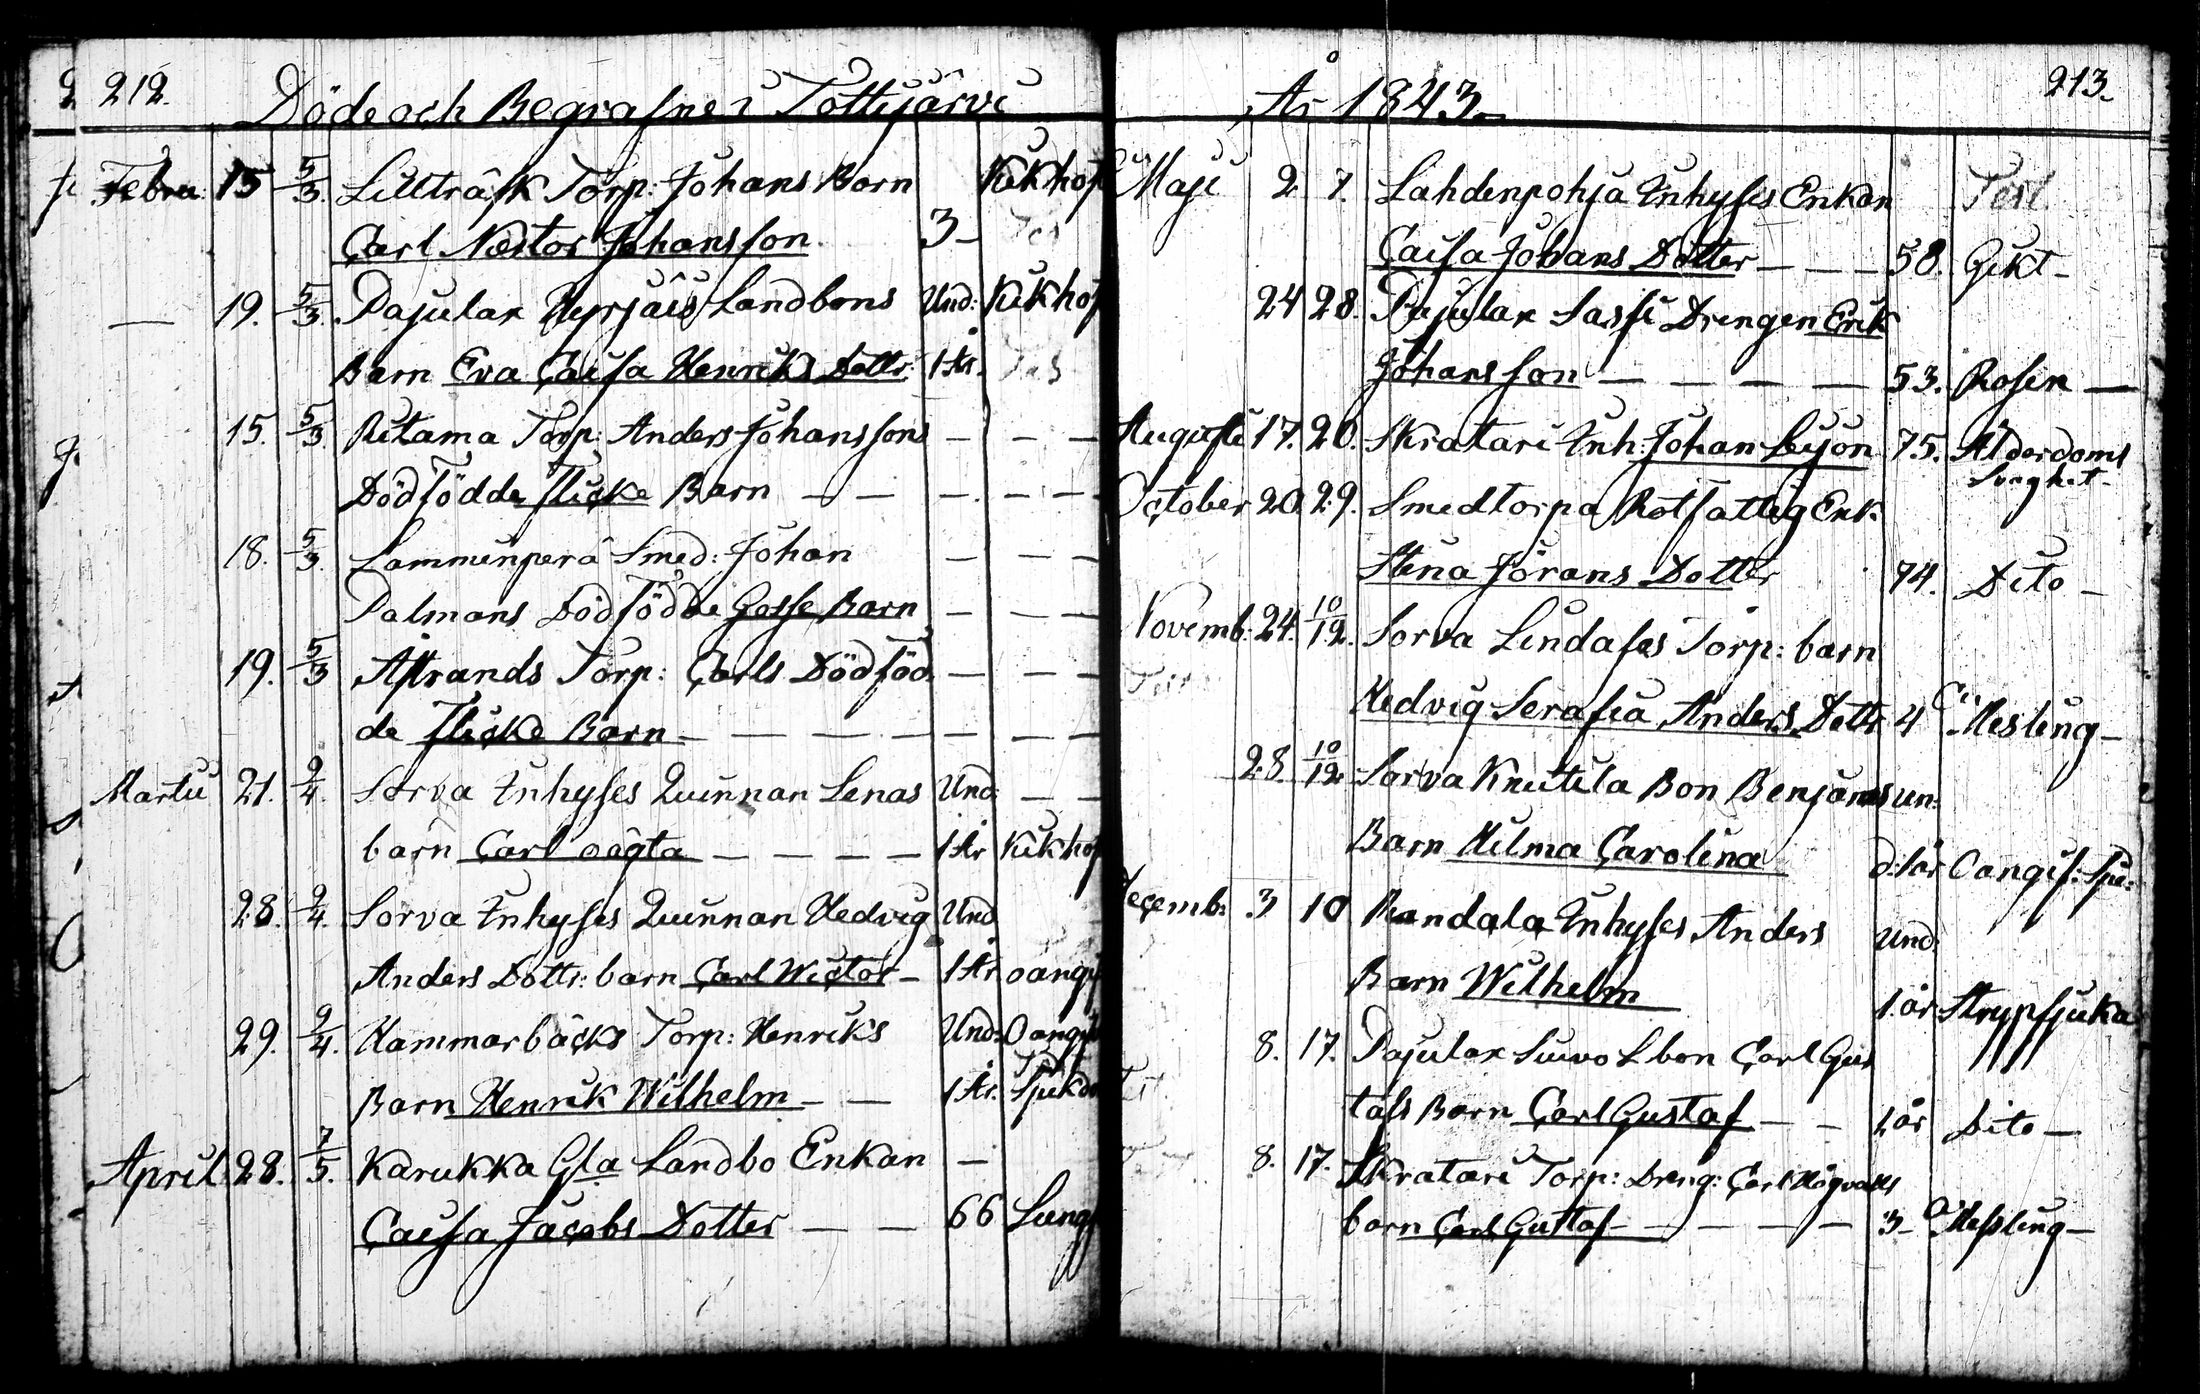 212.
Döde och Begrafne i Tottijärvi
Febru: 15 5/3. Lillträsk Torp: Johans Barn Kikhos
Carl Nestor Johansson 3 -
— 19. 5/3. Pajulax Yrjäis Landbons Und: Kikhos
Barn Eva Caisa Henriks Dottr: 1 År.
15. 5/3 Ritama Torp: Anders Johanssons — — —
Dödfödde Flicke Barn — — — — —
18. 5/3. Lammenperä Smed: Johan — — —
Palmans Dödfödde Gosse Barn — — —
19. 5/3 Åstrands Torp: Carls Dödföd — — —
de Flicke Barn — — — — — — —
Martii 21. 2/4. Sorva Inhyses Quinnan Lenas Und: — —
barn Carl oägta — — — — 1 År Kikhos
28. 2/4. Sorva Inhyses Quinnan Hedvig Und
Anders Dottr: barn Carl Wictor — 1 År oangif
29. 2/4. Hammarbäcks Torp: Henriks Und: Oangif
Barn Henrik Wilhelm — — 1 År. Sjukdo
April 28. 7/5. Karukka Gla Landbo Enkan —
Caisa Jacobs Dotter — — 66 Lungs
213.
År 1843.
Maji 2 7. Lahdenpohja Inhyses Enkan
Caisa Johans Dotter — — — 58. Gikt —
24 28. Pajulax Sassi Drengen Erik
Johansson — — — — 53. Rosen —
Augusti 17. 20. Skratari Inh: Johan Leijon 75. Ålderdoms
Svaghet —
October 20 29. Smedtorpa Rotfattig Enk:
Stina Jörans Dotter 74. Dito —
Novemb: 24. 10/12. Sorva Lindafes Torp: barn
Hedvig Serafia Anders Dottr 4 Messling —
28. 10/12. Sorva Knutila Bon Benjamins un:
Barn Hilma Carolina d: 1 år Oangif: Spe:
December: 3 10 Randala Inhyses Anders Und:
Barn Wilhelm 1. år Strypsjuka
8. 17. Pajulax Suivo Lbon Carl Gus
tafs Barn Carl Gustaf — — 1 år Dito —
8. 17. Skratari Torp: Dreng: Carl Högvalls
barn Carl Gustaf — — — — 3 — Messling —